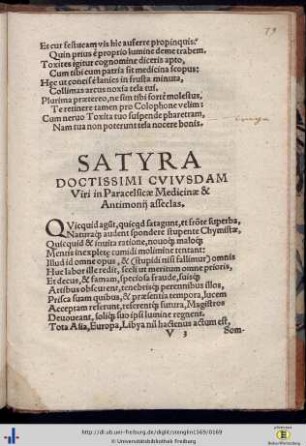 Et cur festucam vis hic auferre propinqui?
Quin prius è proprio lumine deme trabem.
Toxites igitur cognomine diceris apto,
Cum tibi cum patria sit medicina scopus:
Hęc ut concisę lanięs in frusta minuta,
Collimat arcus noxia tela tui.
Plurima prætereo, ne sim tibi fortè molestus,
Te retinere tamen pro Colophone velim:
Cum neruo Toxita tuo suspende pharetram,
Nam tua non poterunt tela nocere bonis.
SATYRA
DOCTISSIMI CVIVSDAM
Viri in Paracelsicæ Medicinæ &
Antimonij asseclas.
QVicquid agũt, quicqd satagunt, et frõte superba,
Naturaq; audent spondere stupente Chymistæ,
Quicquid & inuita ratione, nouoq; maloq;
Mentis inexpletę cumidi molimine tentant:
Illud id omne opus, & (stupidi nisi fallimur) omnis
Huc labor ille redit, sceli ut meritum omne prioris,
Et decus, & famam, speciosa fraude, suisq;
Artibus obscurent, tenebrisq; perennibus illos,
Prisca suam quibus, & præsentia tempora, lucem
Acceptam referunt, referentq; futura, Magistros
Deuoueant, soliq; suo ipsi lumine regnent.
Tota Asia, Europa, Libya nil hactenus actum est,
V 3
Som-
79
http://dl.ub.uni-freiburg.de/diglit/stenglin1569/0169
© Universitätsbibliothek Freiburg